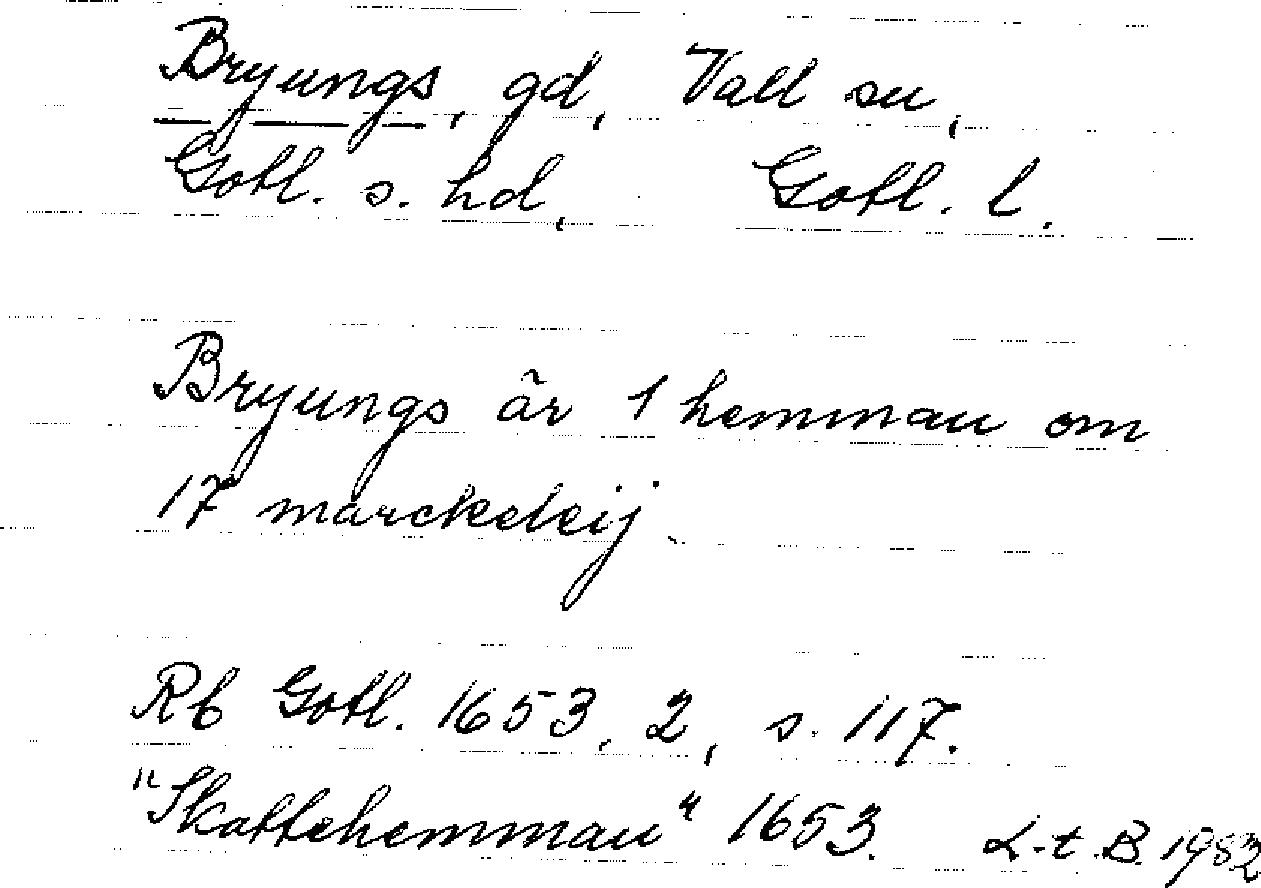 Bryungs, gd, Vall sn,
Gotl. s. hd, Gotl. l.
Bryungs är 1 hemman om
17 marckeleij.
Rb Gotl. 1653, 2, s. 117.
"Skattehemman" 1653. L.t.B. 1982